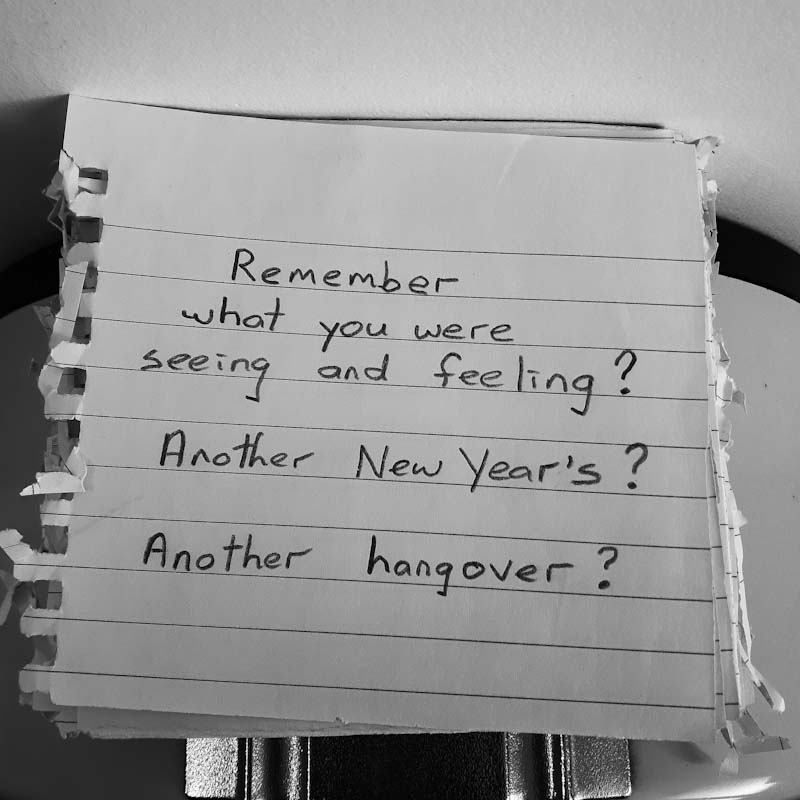 Remember
what you were
seeing and feeling?
Another New Year's?
Another hangover?